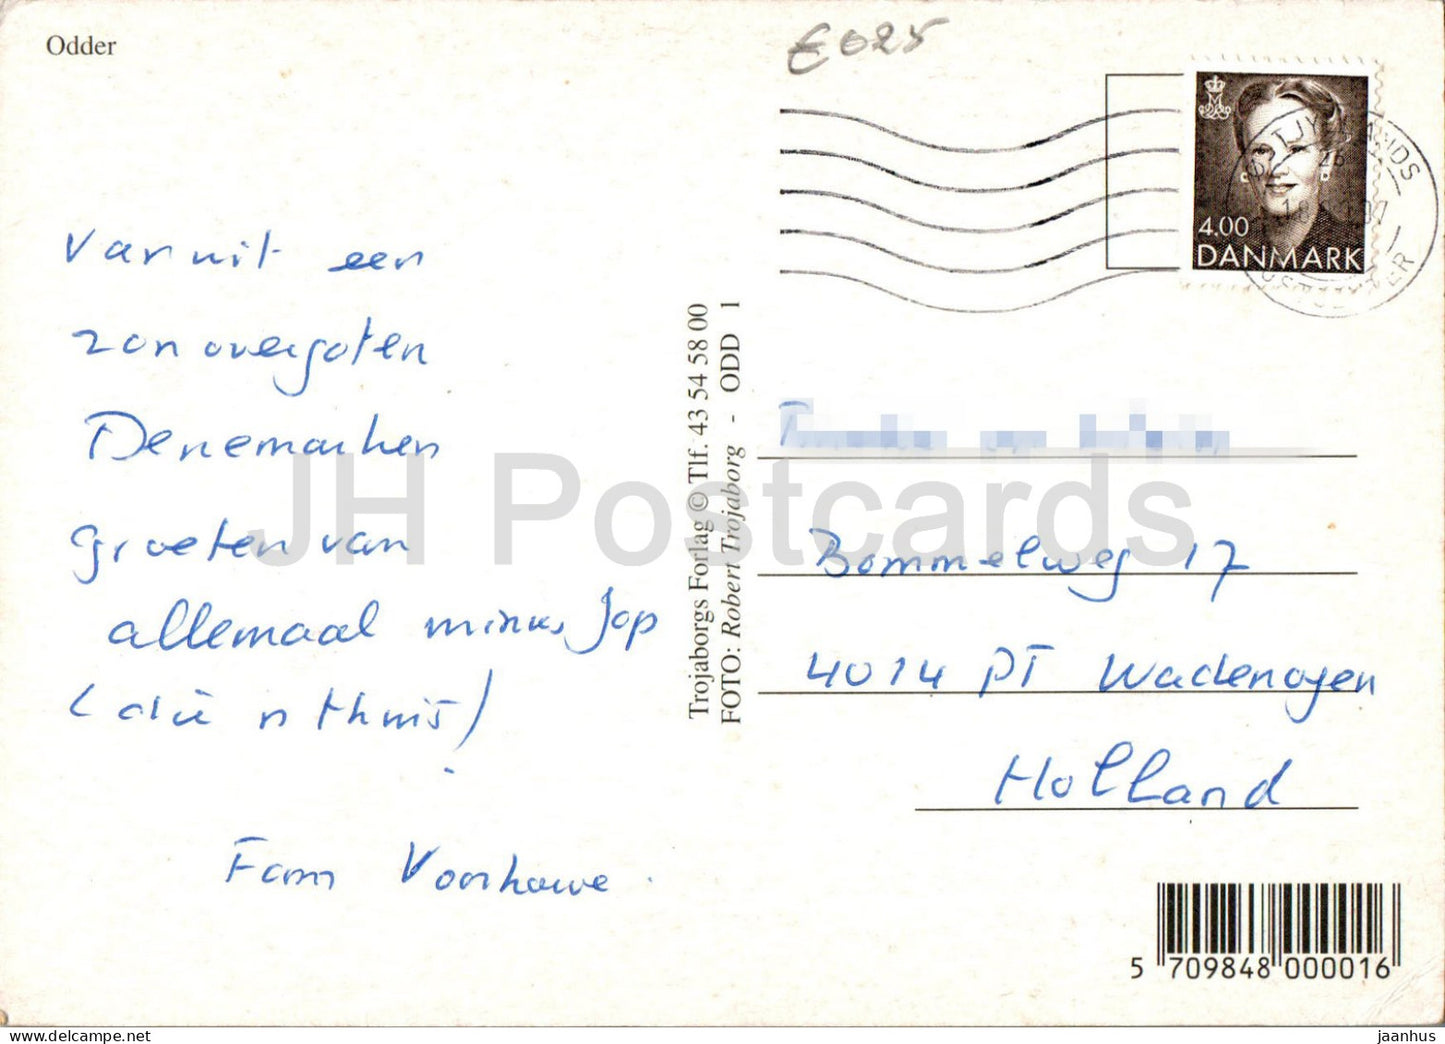 Odder
€ 025
4.00
DANMARK
Vanuit een
zonovergoten
Denemarken
groeten van
allemaal minus Jop
(die is thuis)
Fam Voorhouve.
Trojaborgs Forlag © Tlf. 43 54 58 00
FOTO: Robert Trojaborg - ODD 1
Bommelweg 17
4014 PT Wadenoyen
Holland
5 709848 000016
JH Postcards
jaanhus